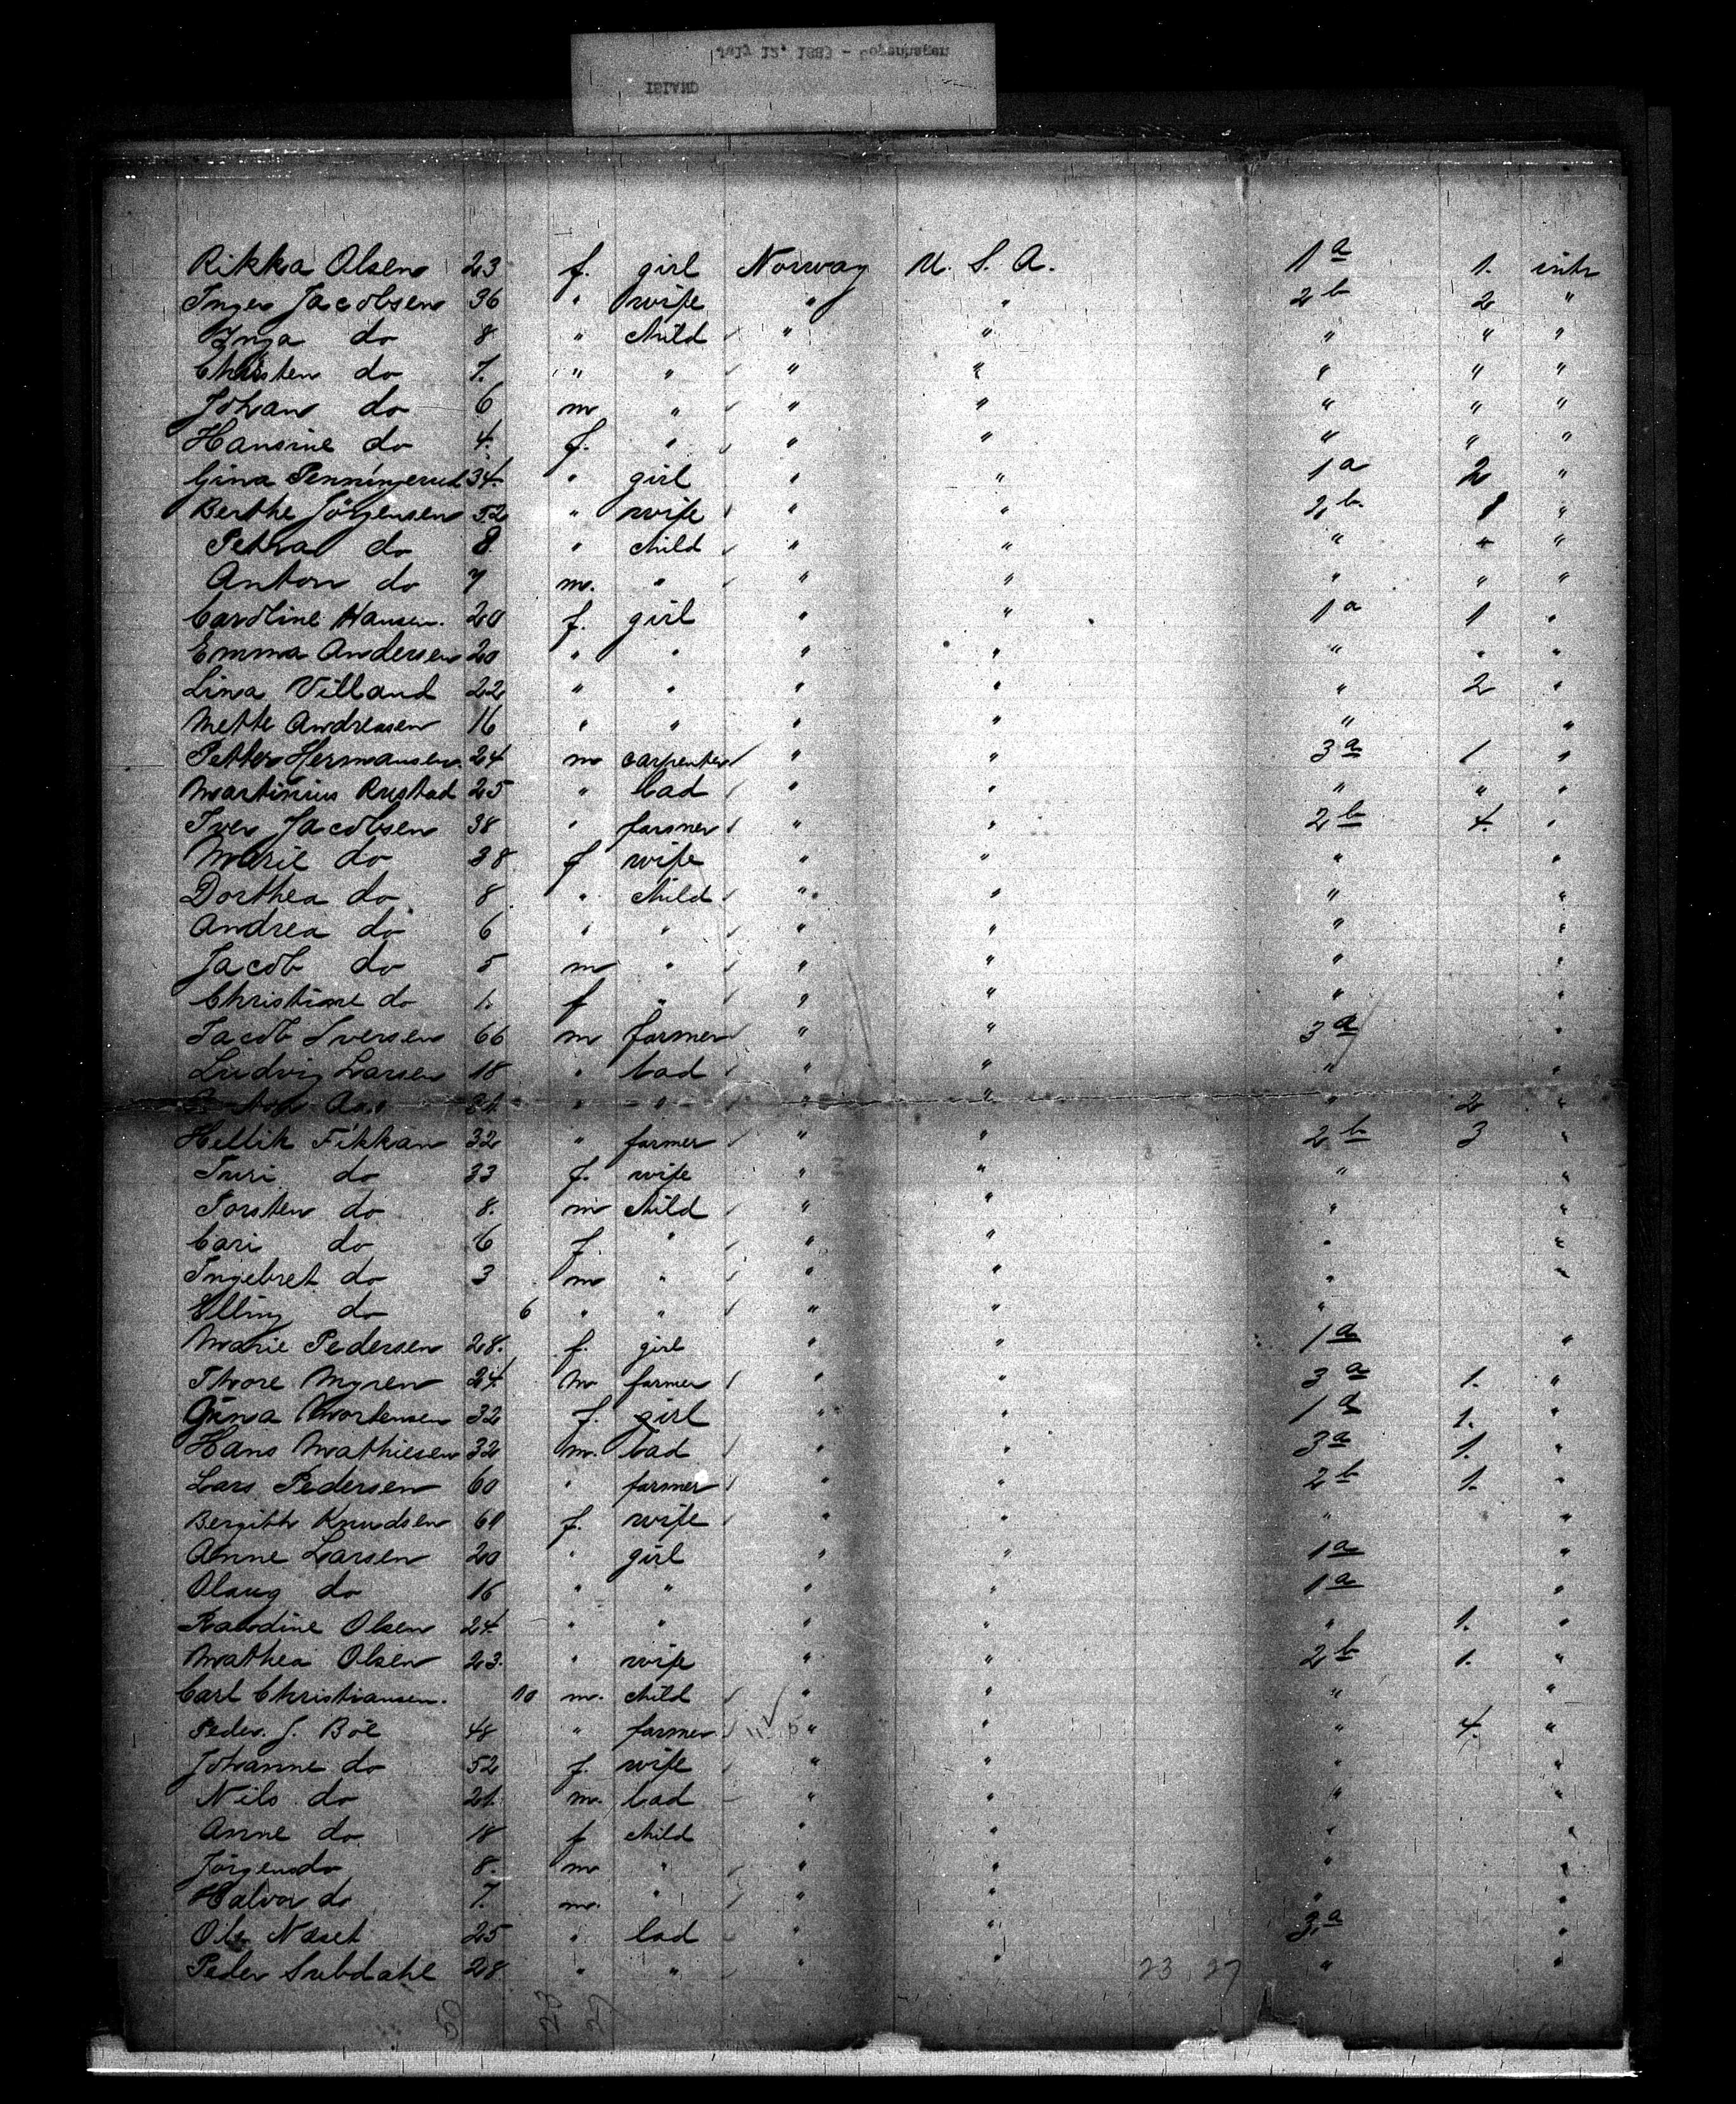 July 12, 1883 - Copenhagen
THINGVALLA
Rikka Olsen 23 f. girl Norway U. S. A. 1a 1. intr
Inger Jacobsen 36 " wife " " 2b 2 "
Inga do 8 " child " " " " "
Christen do 7. " " " " " " "
Johan do 6 m " " " " " "
Hansine do 4. f. " " " " " "
Gina Penningerud 34. " girl " " 1a 2 "
Berthe Jörgensen 52 " wife " " 2b 1 "
Petra do 8 " child " " " " "
Anton do 7 m. " " " " " "
Caroline Hansen. 20 f. girl " " 1a 1 "
Emma Andersen 20 " " " " " " "
Lina Villand 22 " " " " " 2 "
Mette Andressen 16 " " " " " "
Petter Hermansen. 24 m carpenter " " 3a 1 "
Martinius Rustad 25 " lad " " " " "
Iver Jacobsen 38 " farmer " " 2b 4. "
Marie do 38 f wife " " " "
Dorthea do 8 " child " " " "
Andrea do 6 " " " " " "
Jacob do 5 m " " " " "
Christine do 1. f " " " " "
Jacob Iversen 66 m farmer " " 3a "
Ludvig Larsen 18 " lad " " " "
" " " " " 2 "
Hellik Fikkan 32 " farmer " " 2b 3 "
Turi do 33 f. wife " " " "
Torsten do 8. m child " " " "
Cari do 6 f " " " " "
Ingebret do 3 m " " " " "
Elling do 6 " " " " " "
Marie Pedersen 28. f. girl " " 1a "
Thore Myren 24. m farmer " " 3a 1. "
Gina Mortensen 32 f. girl " " 1a 1. "
Hans Mathiesen 32 m. lad " " 3a 1. "
Lars Pedersen 60 " farmer " " 2b 1. "
Bergitte Knudsen 61 f. wife " " " "
Anne Larsen 20 " girl " " 1a "
Olaug do 16 " " " " 1a "
Olsen 24. " " " " " 1. "
Mathea Olsen 23. " wife " " 2b 1. "
Carl Christiansen. 10 m. child " " " "
Peder. J. Böe 48 " farmer " " " 4. "
Johanne do 52 f. wife " " " "
Nils do 21. m. lad " " " "
Anne do 18 f child " " " "
Jörgen do 8. m " " " " "
Halvor do 7. m. " " " " "
Ole Naset 25 " lad " " 3a "
Peder Subdahl 28 " " " " 23 27 " "
50 23 27